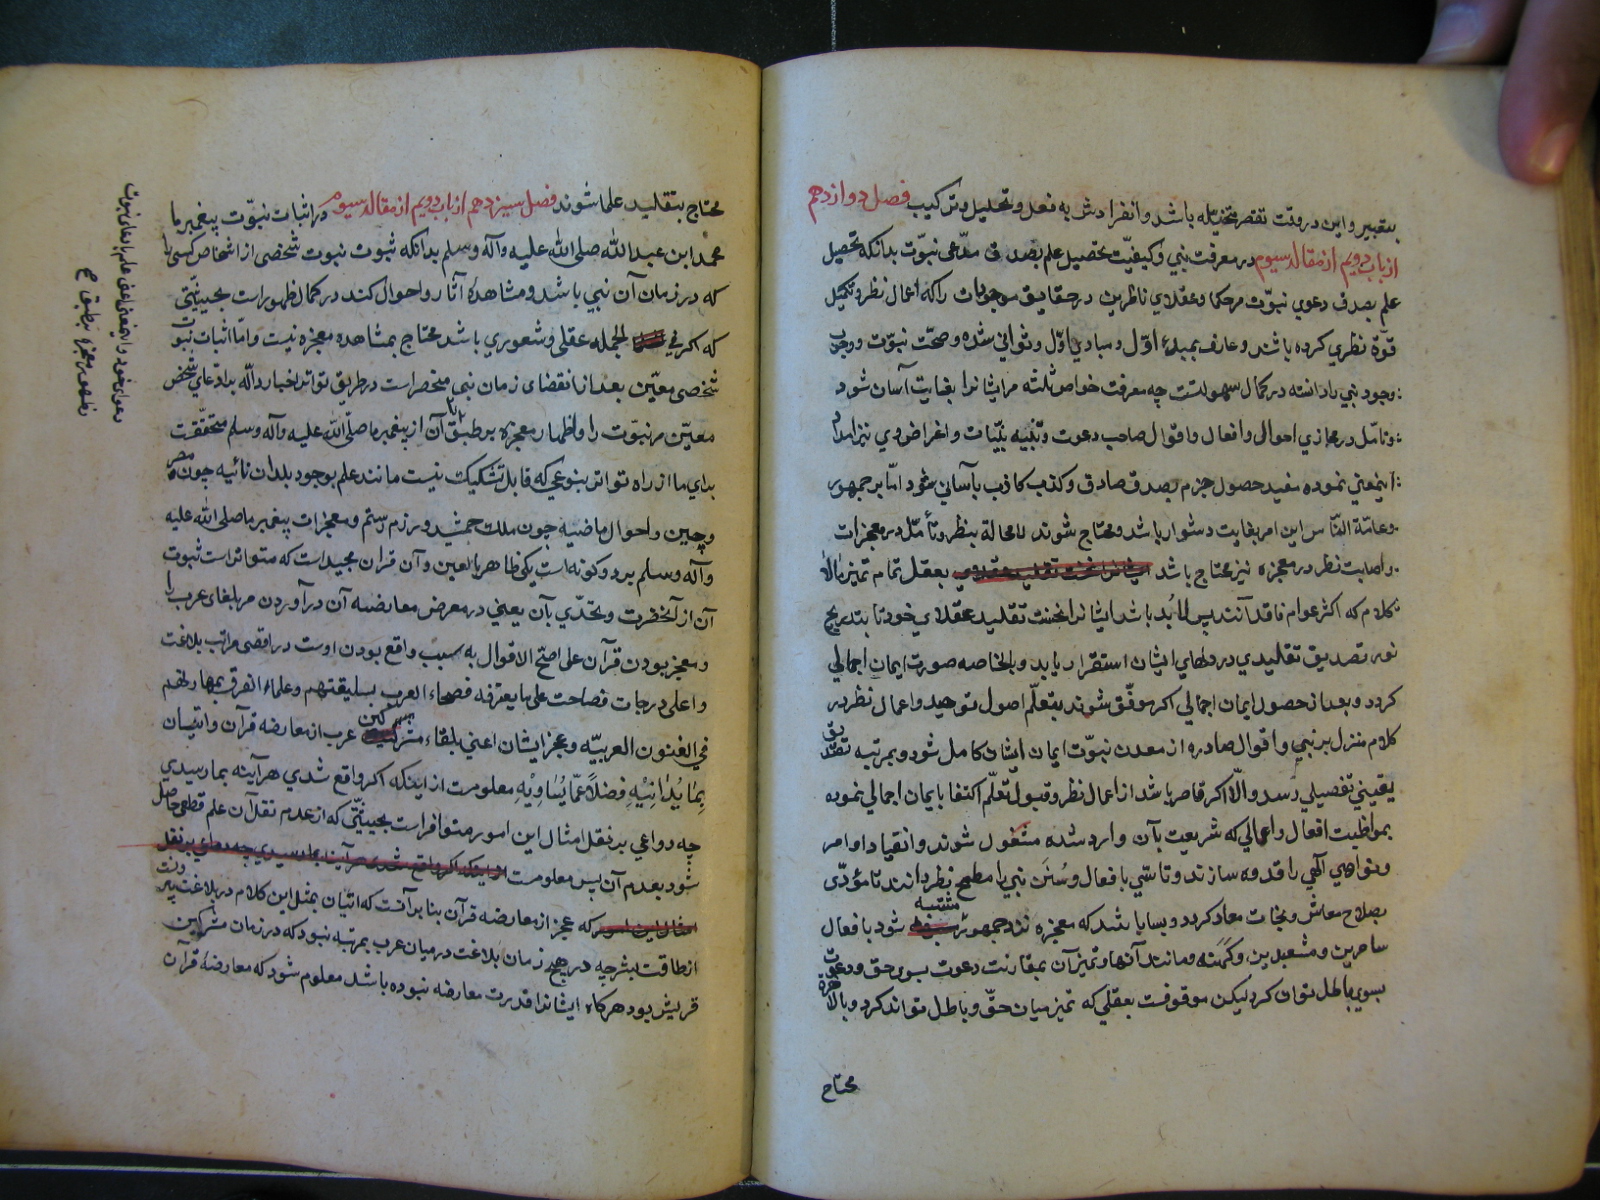 بتعبیر و این در وقت تفنن متخیله باشد و انفرادش به فعل و تحلیل و ترکیب فصل دوازدهم
از باب دویم از مقاله سیوم در معرفت نبي و کیفیّت تحصیل علم بصدق مدّعی نبوّت بدانکه تحصیل
علم بصدق دعوی نبوّت مر حکما و عقلای ناظرین در حقایق موجودات را که اعمال نظر و تکمیل
قوّة نظري کرده باشند و عارف بمبدء اوّل و مبادي اوّل و ثوانی شده و صحّت نبوّت و وجوب
وجود نبي را دانسته در کمال سهولتست چه معرفت خواص ثلثه مر ایشانرا بغایت آسان شود
و تأمّل در مجاري احوال و افعال و اقوال صاحب دعوت و تنبیه بنیّات و اغراض وي نیز امداد
اینمعني نموده مفید حصول جزم بصدق صادق و کذب کاذب بآسانی شود امّا بر جمهور
و عامّة النّاس این امر بغایت دشوار باشد و محتاج شوند لا محالة بنظر و تأمّل در معجزات
و اصابت نظر در معجزه نیز محتاج باشد بعقل تمام تمیز بالا
کلام که اکثر عوام فاقد آنند پس لا بُد باشد ایشانرا نخست تقلید عقلاي خود تا بتدریج
نور تصدیق تقلیدي در دلهاي ایشان استقرار یابد و بالخاصه صورت ایمان اجمالي
کردد و بعد از حصول ایمان اجمالي اکر موفّق شوند بتعلّم اصول توحید و اعمال نظر در
کلام منزل بر نبي و اقوال صادره از معدن نبوّت ایمان ایشان کامل شود و بمرتبه تصدیق
یقیني تفصیلي رسد و الّا اکر قاصر باشد از اعمال نظر و قبول تعلّم اکتفا بایمان اجمالي نموده
بمواظبت افعال و اعمالي که شریعت بآن وارد شده مشغول شوند و انقیاد اوامر
و نواهي آلهي را قدوه سازند و تاسّي بافعال و سُنَن نبي را مطمح نظر دانند تا مؤدّی
بصلاح معاش و نجات معاد کردد و بسا باشد که معجزه نزد جمهور مشتبه شود بافعال
ساحرین و مشعبدین و کَهَنه و مانند آنها و تمیز آن بمقارنت دعوت بسوی حق و دعوت
بسوی باطل توان کرد لیکن موقوفست بعقلي که تمیز میان حقّ و باطل تواند کرد و بالآخره
محتاج
محتاج بتقلید علما شوند فصل سیزدهم از باب دویم از مقاله سیوم در اثبات نبوّت پیغمبر ما
محمد ابن عبدالله صلی الله علیه و آله و سلم بدانکه ثبوت نبوت شخصی از اشخاص کسی را
که در زمان آن نبي باشد و مشاهدهٔ آثار و احوال کند در کمال ظهور است بحیثیّتی
که اکر في الجمله عقلی و شعوري باشد محتاج بمشاهده معجزه نیست و امّا اثبات نبوّت
شخصی معیّن بعد از انقضای زمان نبي منحصر است در طریق تواتر اخبار و الله ادعاي شخص
معیّن مر نبوّت را و اظهار معجزه بر طبق آن از پیغمبر ما صلّی الله علیه و آله و سلم متحقّقست
براي ما از راه تواتر بنوعي که قابل تشکیک نیست مانند علم بوجود بلدان نائیه چون مصر
و چین و احوال ماضیه چون ملک جمشید و رزم رستم و معجزات پیغمبر ما صلی الله علیه
و آله و سلم بر دو کونه است یکی ظاهر بالعین و آن قران مجید است که متواتر است ثبوت
آن از آنحضرت و تحدّي بآن یعني در معرض معارضه آن در آوردن مر بلغای عرب را
و معجز بودن قرآن علی اصحّ الاقوال به سبب واقع بودن اوست در اقصی مراتب بلاغت
و اعلی درجات فصاحت علی ما یعترفه فصحاء العرب بسلیقتهم و علماء الفرق بمهارتهم
في الفنون العربیّه و عجز ایشان اعني بلغاء مشرکین عرب از معارضه قرآن و اتیان
بِمَا یُدَانِیْهِ فضلاً عَمّا یُسَاوِیْهِ معلومست از اینکه اکر واقع شدي هر آینه بما رسیدي
چه دواعي بر نقل امثال این امور متوافر است بحیثیّتی که از عدم نقل آن علم قطعی حاصل
شود بعدم آن پس معلومست از اینکه اکر واقع شدي هر آینه بما رسیدي چه دواعي بر نقل
امثال این امور که عجز از معارضه قرآن بنا بر آنست که اتیان بمثل این کلام در بلاغت بیرونست
از طاقت بشر چه در هیچ زمان بلاغت در میان عرب بمرتبه نبود که در زمان مشرکین
قریش بود هرکاه ایشانرا قدرت معارضه نبوده باشد معلوم شود که معارضهٔ قرآن